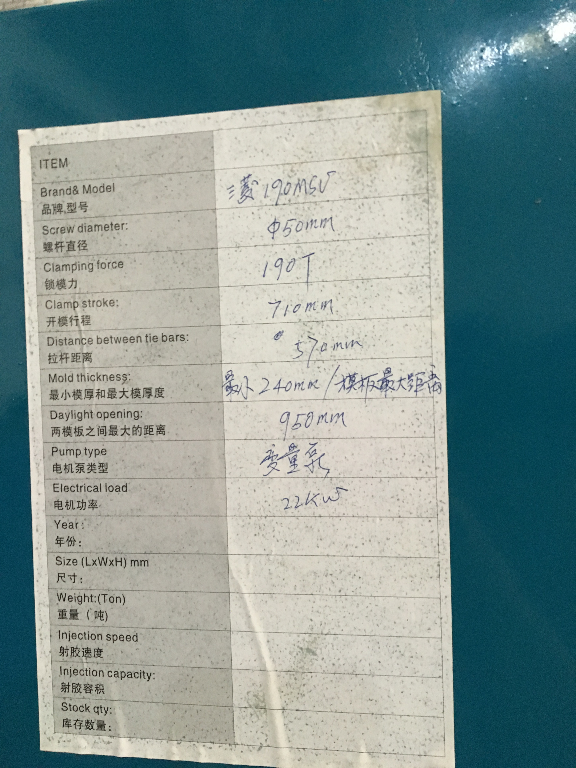 ITEM
Brand& Model
品牌,型号
三菱 190MSV
Screw diameter:
螺杆直径
Φ50mm
Clamping force
锁模力
190T
Clamp stroke:
开模行程
710mm
Distance between tie bars:
拉杆距离
570mm
Mold thickness:
最小模厚和最大模厚度
最小240mm/模板最大距离
Daylight opening:
两模板之间最大的距离
950mm
Pump type
电机泵类型
变量泵
Electrical load
电机功率
22KW
Year:
年份:
Size (LxWxH) mm
尺寸:
Weight:(Ton)
重量(吨)
Injection speed
射胶速度
Injection capacity:
射胶容积
Stock qty:
库存数量: